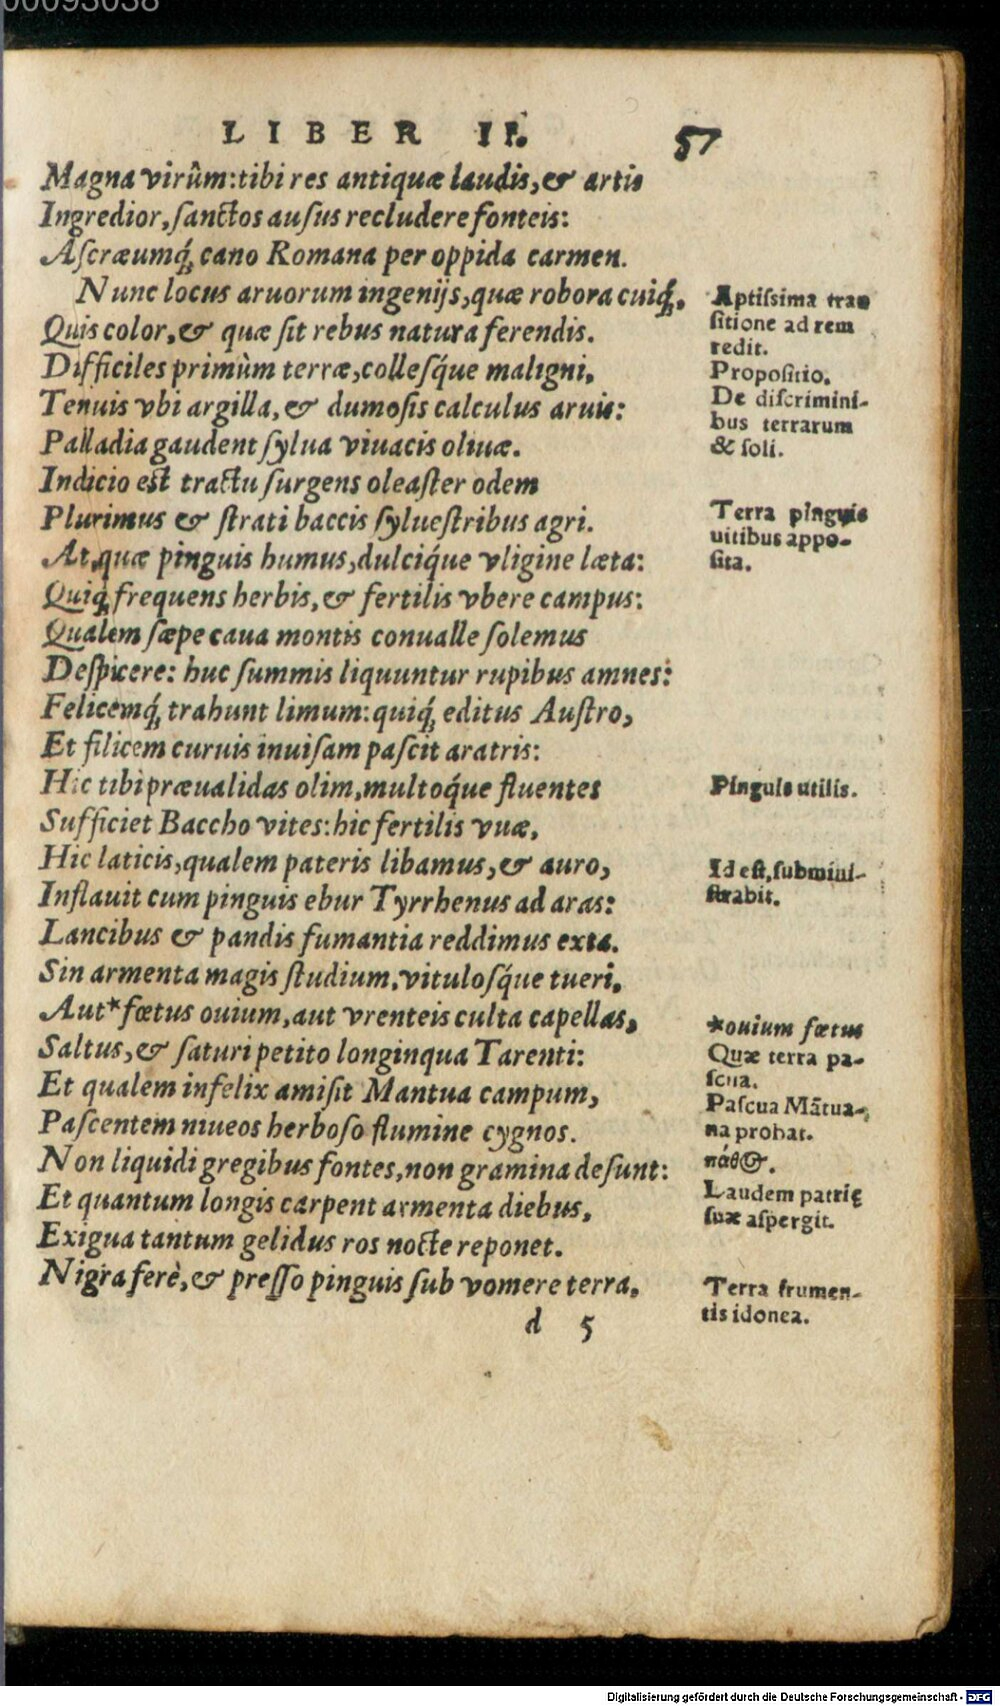 00093038
LIBER II. 57
Magna virûm: tibi res antiquæ laudis, & artis
Ingredior, ſanctos auſus recludere fonteis:
Aſcræumq́; cano Romana per oppida carmen.
Nunc locus aruorum ingenijs, quæ robora cuiq́;,
Quis color, & quæ ſit rebus natura ferendis.
Difficiles primùm terræ, colleſq́ue maligni,
Tenuis vbi argilla, & dumoſis calculus aruis:
Palladia gaudent ſylua viuacis oliuæ.
Indicio est tractu ſurgens oleaſter odem
Plurimus & ſtrati baccis ſylueſtribus agri.
At, quæ pinguis humus, dulciq́ue vligine læta:
Quiq́; frequens herbis, & fertilis vbere campus:
Qualem ſæpe caua montis conualle ſolemus
Deſpicere: huc ſummis liquuntur rupibus amnes:
Felicemq́; trahunt limum: quiq́; editus Auſtro,
Et filicem curuis inuiſam paſcit aratris:
Hic tibi præualidas olim, multoq́ue fluentes
Sufficiet Baccho vites: hic fertilis vuæ,
Hic laticis, qualem pateris libamus, & auro,
Inflauit cum pinguis ebur Tyrrhenus ad aras:
Lancibus & pandis fumantia reddimus exta.
Sin armenta magis ſtudium, vituloſq́ue tueri,
Aut * fœtus ouium, aut vrenteis culta capellas,
Saltus, & ſaturi petito longinqua Tarenti:
Et qualem infelix amiſit Mantua campum,
Paſcentem niueos herboſo flumine cygnos.
Non liquidi gregibus fontes, non gramina deſunt:
Et quantum longis carpent armenta diebus,
Exigua tantum gelidus ros nocte reponet.
Nigra ferè, & preſſo pinguis ſub vomere terra,
d 5
Aptiſsima tran
ſitione ad rem
redit.
Propoſitio.
De diſcrimini-
bus terrarum
& ſoli.
Terra pinguis
uitibus appo-
ſita.
Pinguis utilis.
Id eſt, ſubmini-
ſtrabit.
*ouium fœtus
Quæ terra pa-
ſcua.
Paſcua Mãtua-
na probat.
πάθ⊙.
Laudem patrię
ſuæ aſpergit.
Terra frumen-
tis idonea.
Digitalisierung gefördert durch die Deutsche Forschungsgemeinschaft - DFG